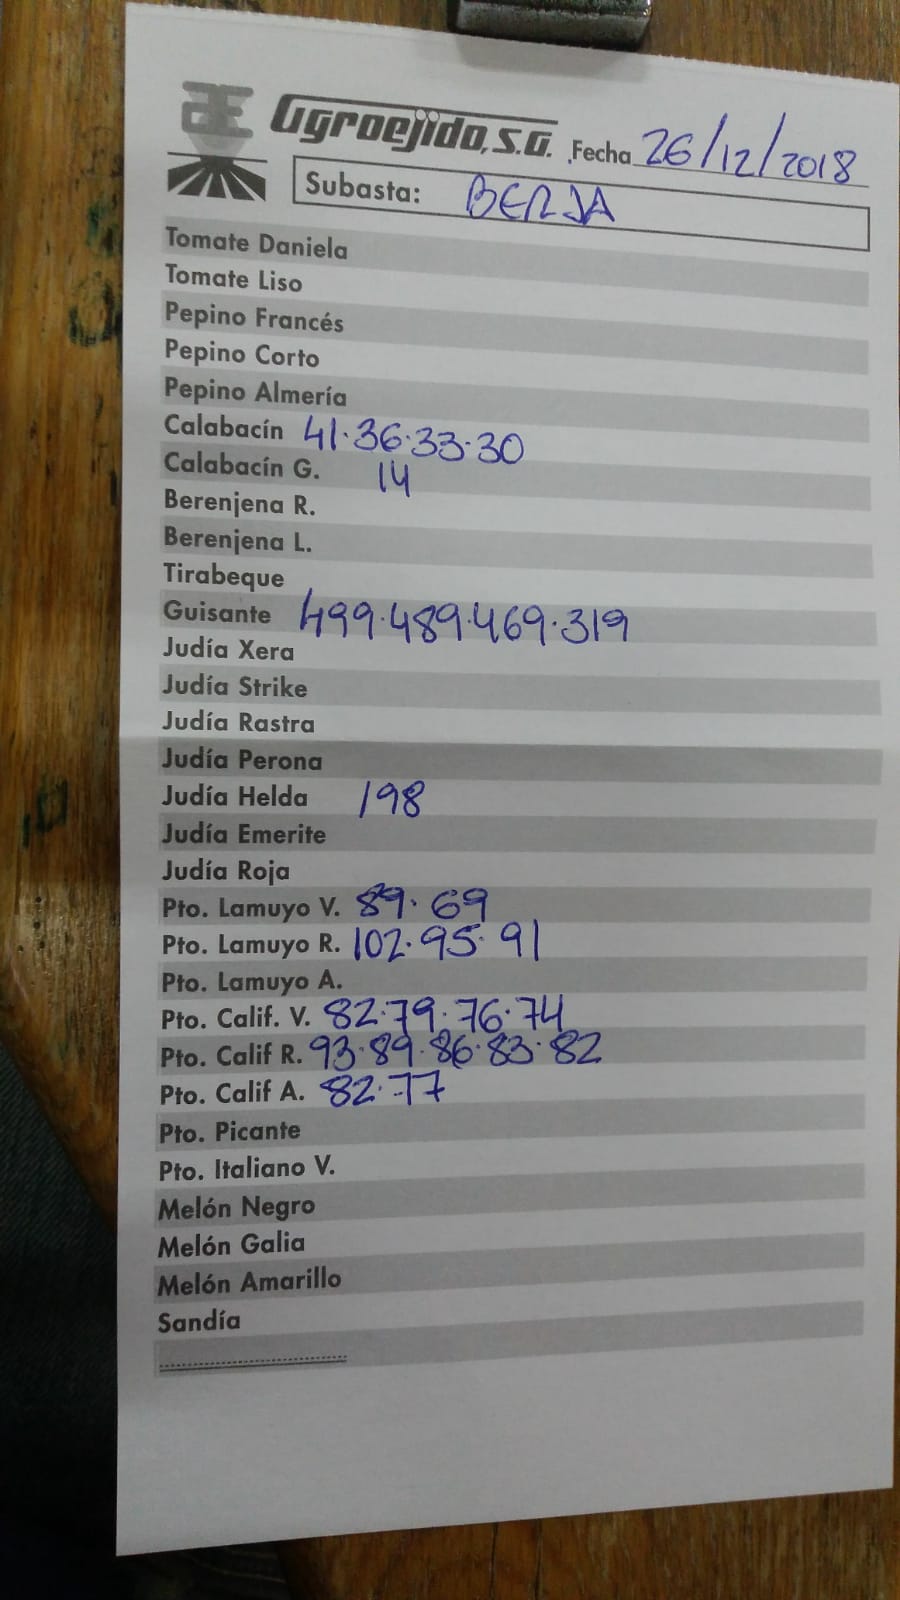 Agroejido, S.A. Fecha 26/12/2018
Subasta: BERJA
Tomate Daniela
Tomate Liso
Pepino Francés
Pepino Corto
Pepino Almería
Calabacín 41.36.33.30
Calabacín G. 14
Berenjena R.
Berenjena L.
Tirabeque
Guisante 499.489.469.319
Judía Xera
Judía Strike
Judía Rastra
Judía Perona
Judía Helda 198
Judía Emerite
Judía Roja
Pto. Lamuyo V. 89.69
Pto. Lamuyo R. 102.95.91
Pto. Lamuyo A.
Pto. Calif. V. 82.79.76.74
Pto. Calif R. 93.89.86.83.82
Pto. Calif A. 82.77
Pto. Picante
Pto. Italiano V.
Melón Negro
Melón Galia
Melón Amarillo
Sandía